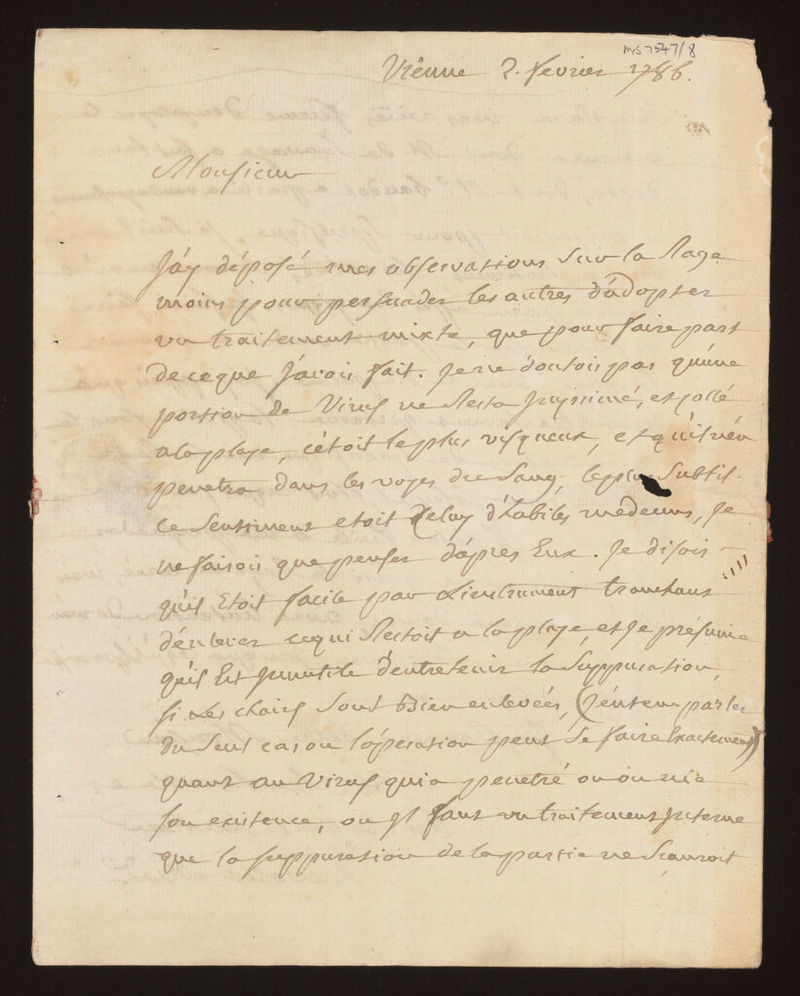 MS 7547/8
Viënne 2. fevrier 1786.
Monsieur
J'áy déposé mes observations sur la Rage
moins pour persuader les autres d'adopter
un traitement mixte, que pour faire part
de ce que J'avois fait. Je ne doutois pas qu'une
portion de Virus ne Resta et collé
a la playe, c'étoit le plus visqueux, et qu'il n'en
penetra dans les voyes du Sang, le plus Subtil.
ce Sentiment etoit celuy d'habiles medecins, Je
ne faisois que penser d'apres Eux. Je disois
qu'il Etoit facile par L'instrument tranchant
d'enlever ce qui Restoit a la playe, et Je présume
qu'il Est Jnutile d'entretenir la Suppuration,
si Les chairs Sont Bien enlevées, (J'entens parler
du Seul cas ou l'opération peut Se faire Exactement)
quant au Virus qui a penetré ou on nie
son existence, ou Jl faut un traitement Jnterne
que la suppuration de la partie ne Scauroit